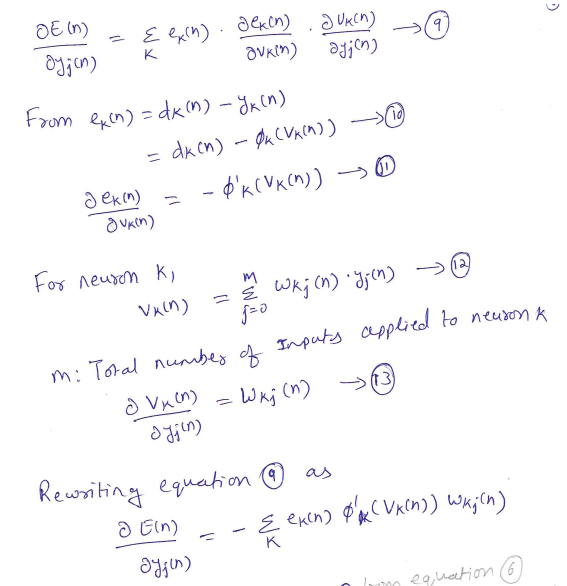 ∂E(n)/∂yj(n) = Σ_K eK(n) · ∂eK(n)/∂vK(n) · ∂vK(n)/∂yj(n) → (9)
From eK(n) = dK(n) − yK(n)
= dK(n) − ϕK(VK(n)) → (10)
∂eK(n)/∂vK(n) = − ϕ'K(VK(n)) → (11)
For neuron K,
VK(n) = Σ_{j=0}^{m} wKj(n) · yj(n) → (12)
m: Total number of Inputs applied to neuron k
∂VK(n)/∂yj(n) = WKj(n) → (13)
Rewriting equation (9) as
∂E(n)/∂yj(n) = − Σ_K eK(n) ϕ'K(VK(n)) WKj(n)
from equation (6)